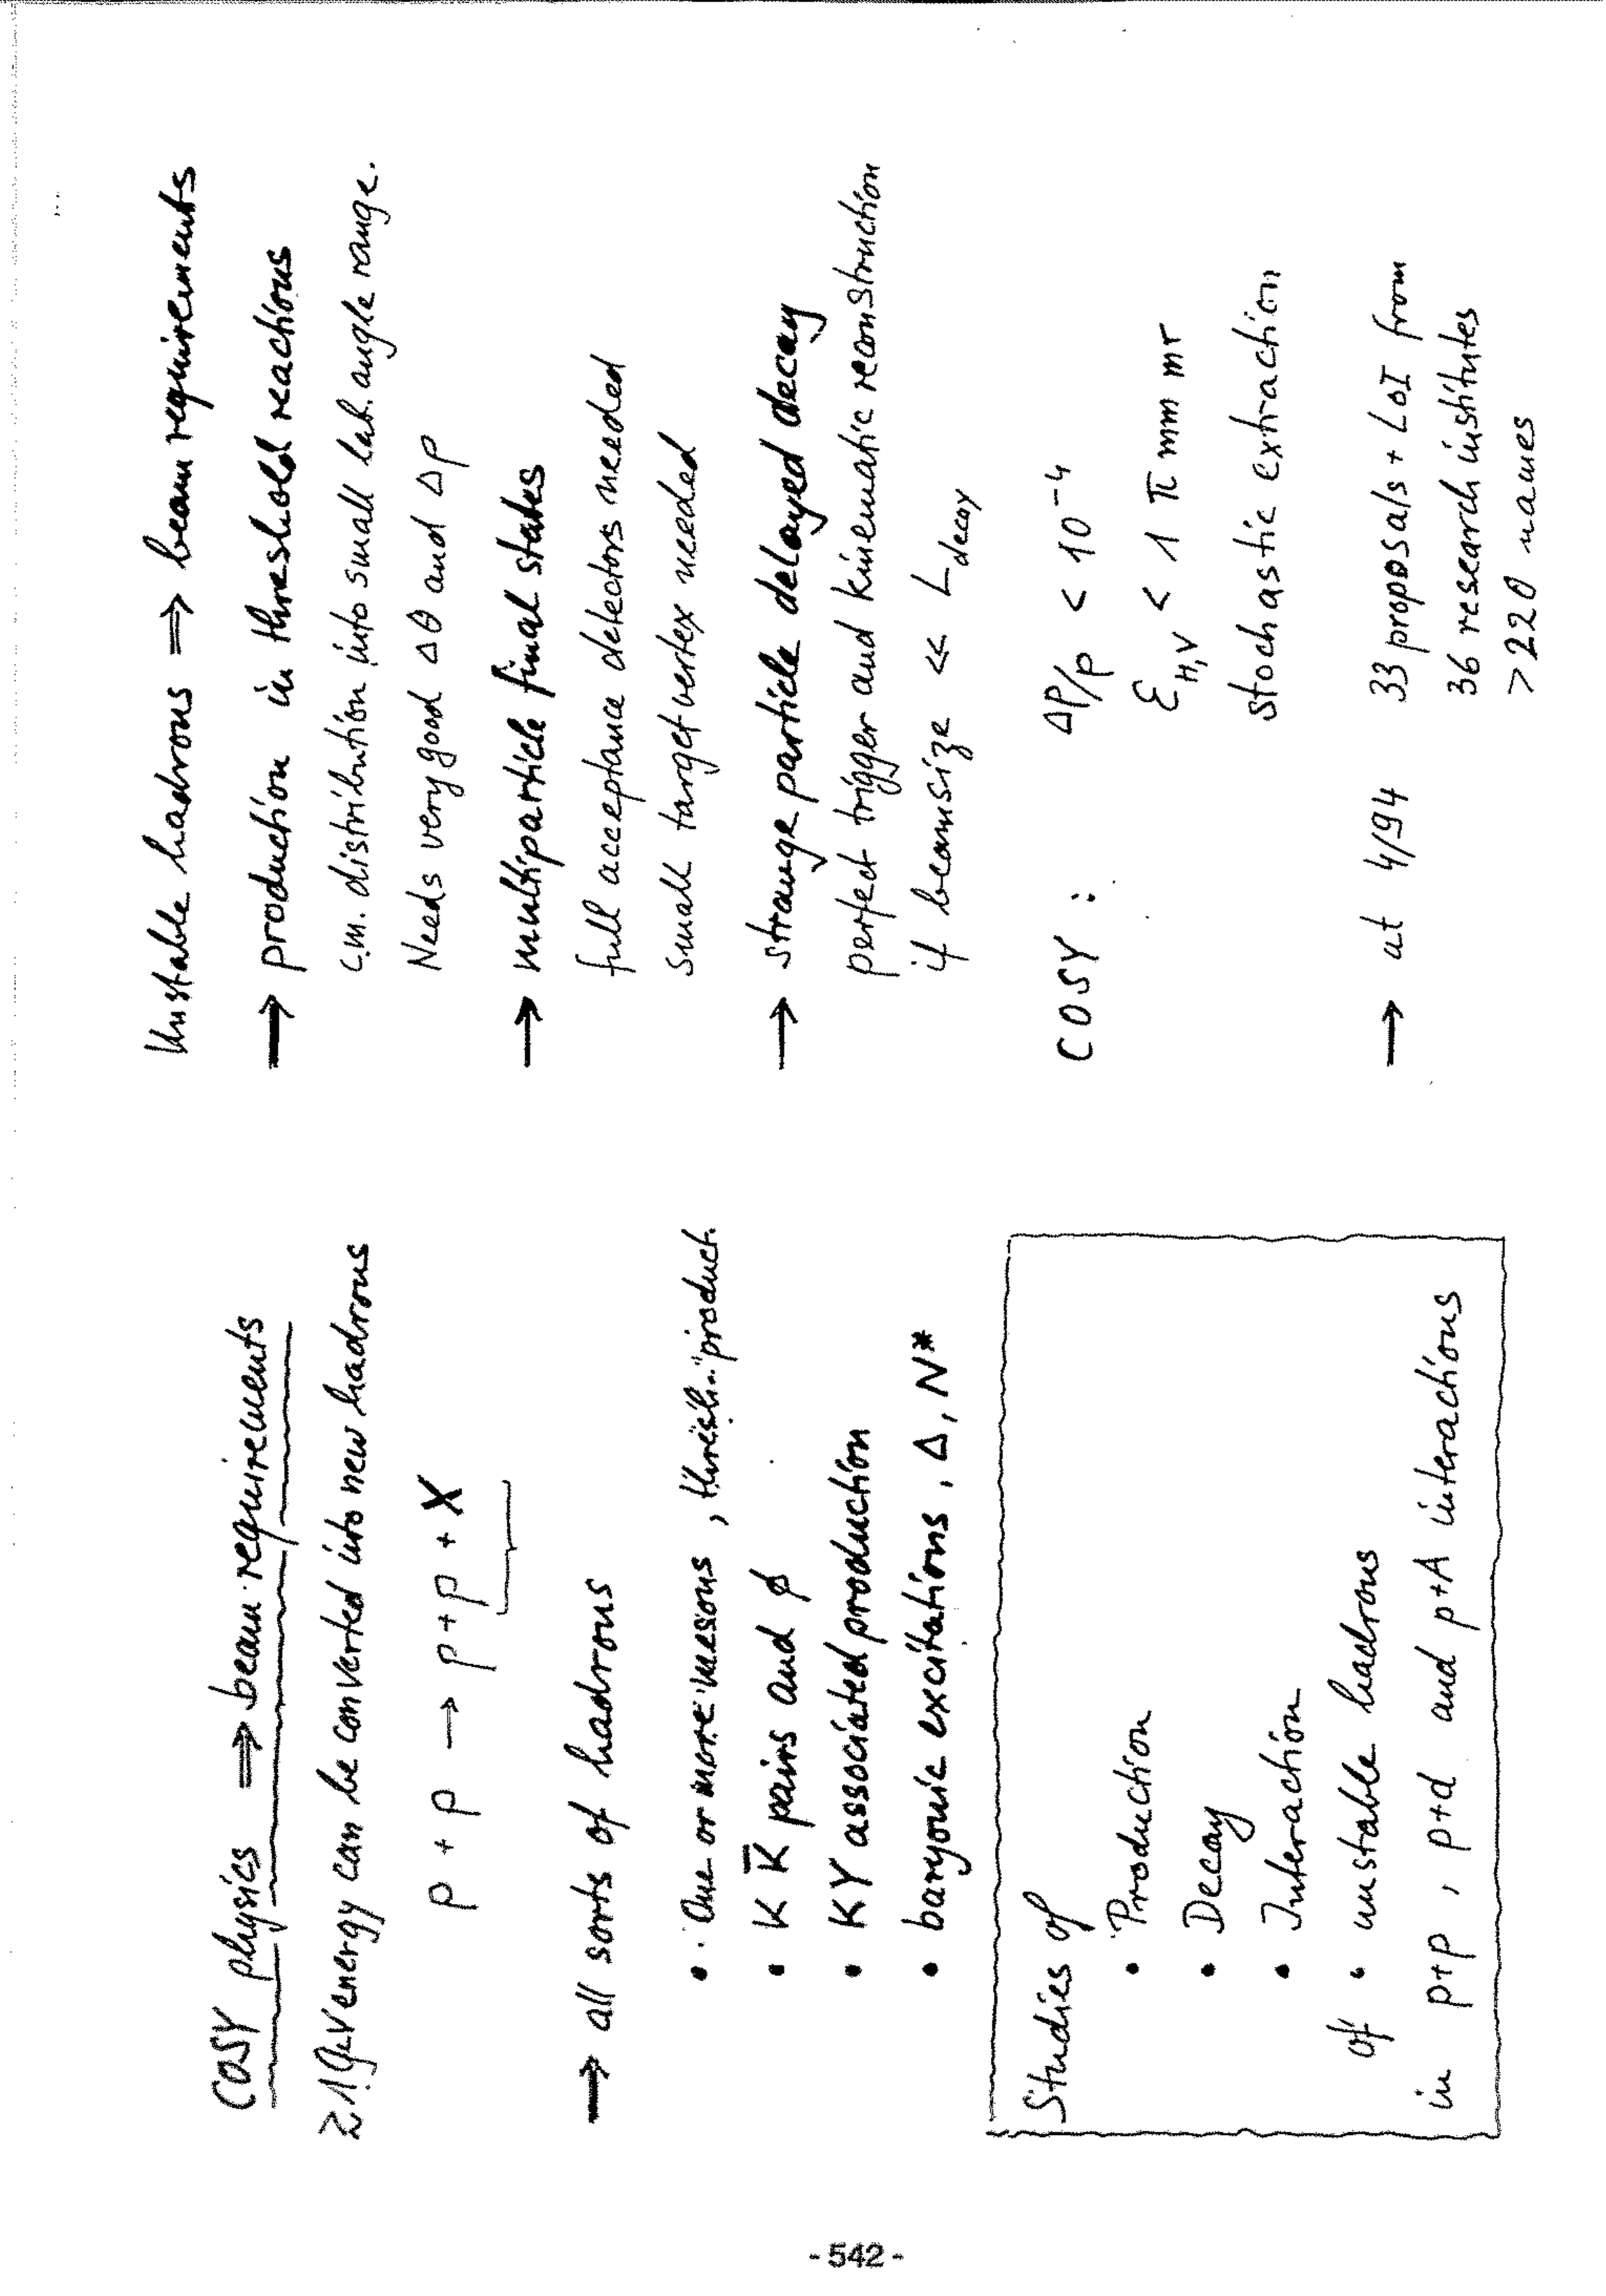 COSY physics ⇒ beam requirements
≳ 1 GeV energy can be converted into new hadrons
p + p → p + p + X
→ all sorts of hadrons
• One or more mesons, "thresh.." product.
• K K̄ pairs and ϕ
• KY associated production
• baryonic excitations, Δ, N*
Studies of
• Production
• Decay
• Interaction
of • unstable hadrons
in p+p, p+d and p+A interactions
Unstable hadrons ⇒ beam requirements
→ production in threshold reactions
c.m. distribution into small lab. angle range.
Needs very good Δθ and Δp
→ multiparticle final states
full acceptance detectors needed
small target vertex needed
→ strange particle delayed decay
perfect trigger and kinematic reconstruction
if beamsize << L_decay
COSY : Δp/p < 10⁻⁴
ε_H,V < 1 π mm mr
stochastic extraction
→ at 4/94 33 proposals + LoI from
36 research institutes
> 220 names
- 542 -